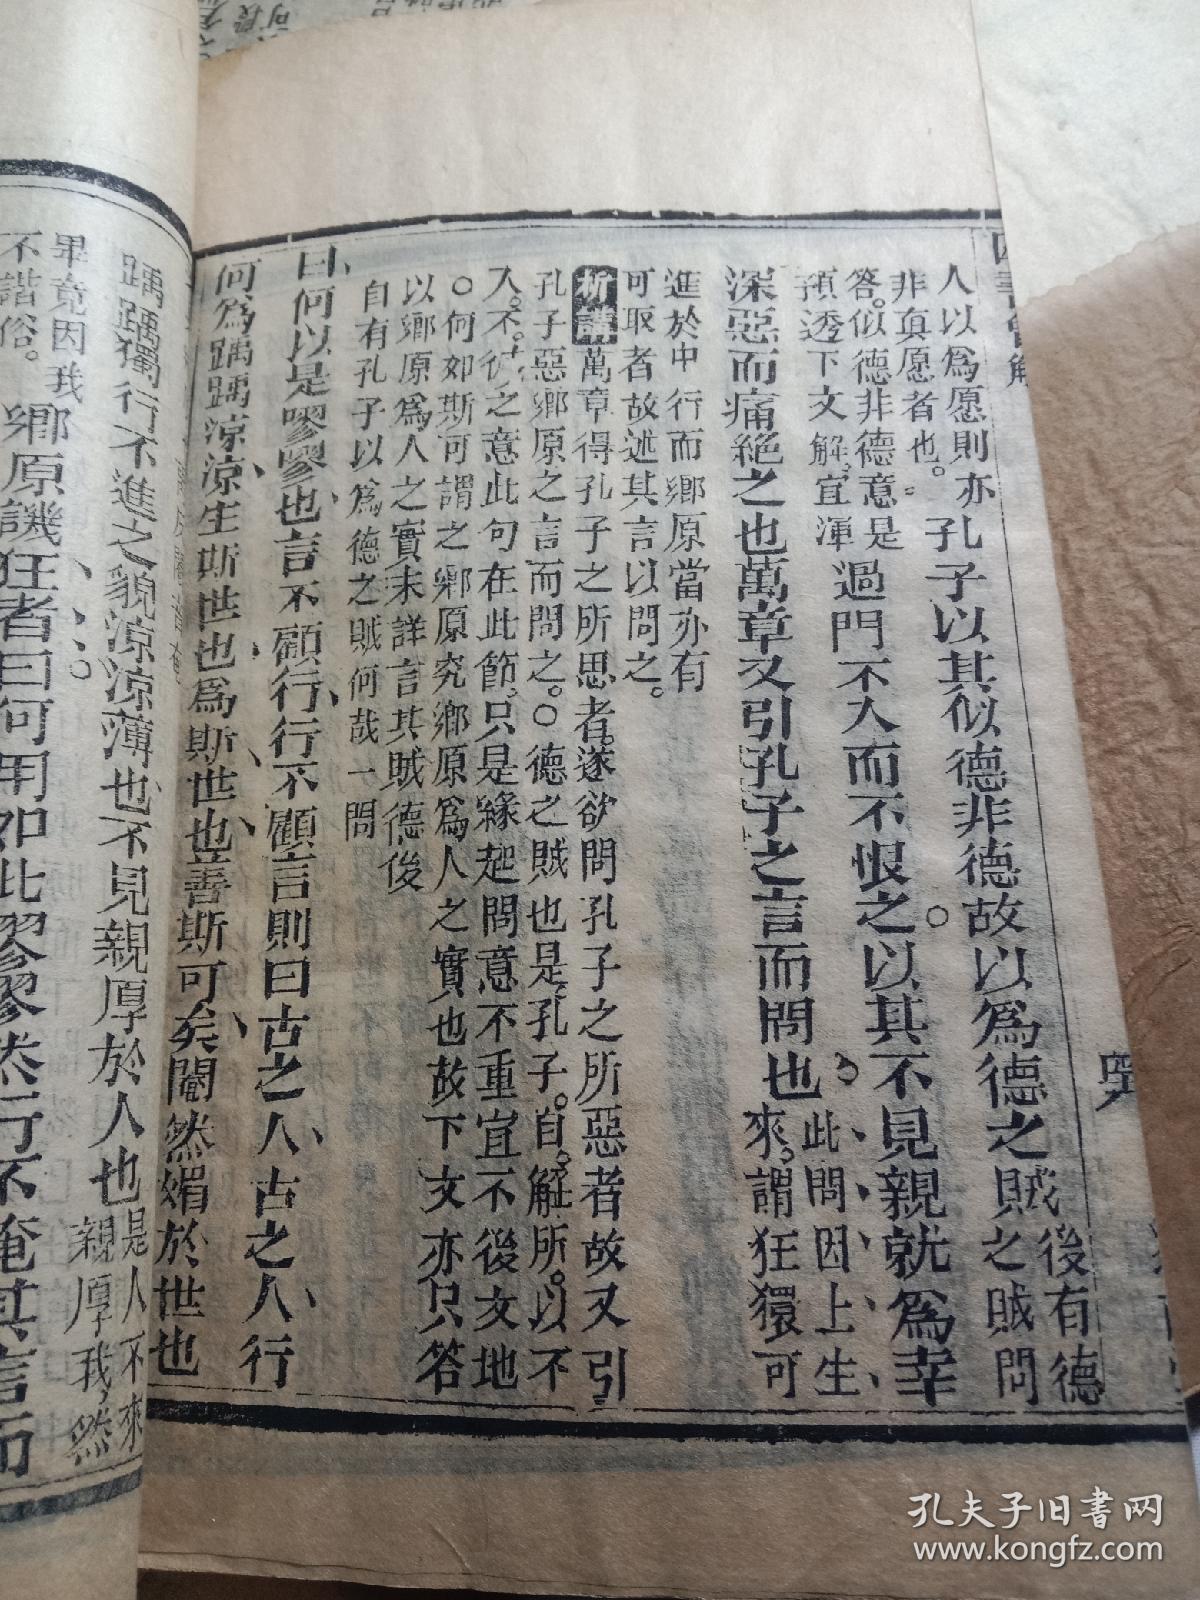 四書
解
人以為愿則亦孔子以其似德非德故以為德之賊後有德
非真愿者也。之賊問
答。似德非德意是過門不入而不恨之以其不見親就為幸
預透下文解宜渾
深惡而痛絕之也萬章又引孔子之言而問也此問因上生
來。謂狂獧可
進於中行而鄉原當亦有
可取者故述其言以問之。
析講萬章得孔子之所思者遂欲問孔子之所惡者故又引
孔子惡鄉原之言而問之。○德之賊也是孔子。自。解所。以不
入。不。之意此句在此節。只是緣起問意不重宜不後文地
。何如斯可謂之鄉原究鄉原為人之實也故下文亦只答
以鄉原為人之實未詳言其賊德後
自有孔子以為德之賊何哉一問
曰何以是嘐嘐也言不顧行行不顧言則曰古之人古之人行
何為踽踽涼涼生斯世也為斯世也善斯可矣閹然媚於世也
踽踽獨行不進之貌涼涼薄也不見親厚於人也是人不來
親厚我然
畢竟因我
不諧俗。鄉原譏狂者曰何用如此嘐嘐然行不掩其言而
孔夫子旧书网
www.kongfz.com